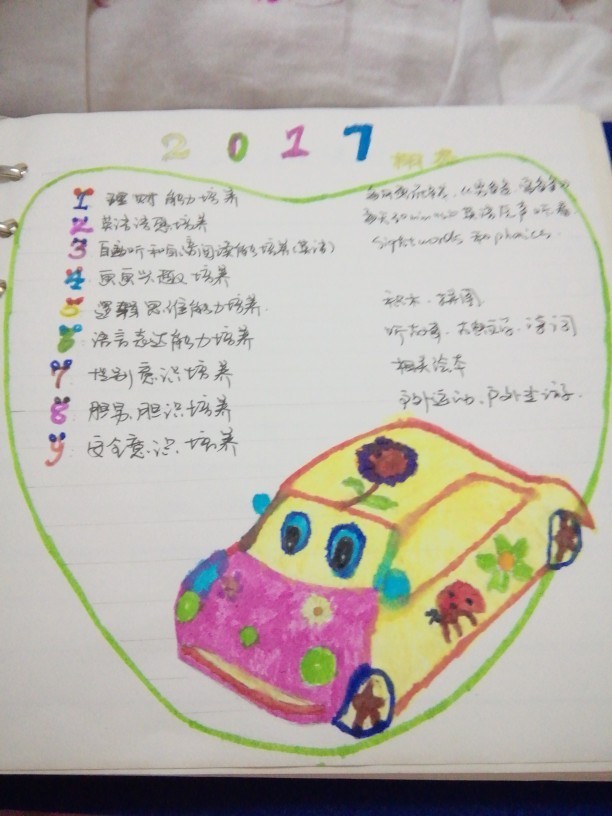 2017
1 理财能力培养
2 英语语感培养 英语原声听看
3 自主听和自主阅读能力培养(英语) sight words 和 phonics.
4 画画兴趣培养
5 逻辑思维能力培养. 积木、拼图
6 语言表达能力培养 听故事、古文、诗词
7 性别意识培养 相关绘本
8 胆量、胆识培养 户外运动、户外
9 安全意识培养